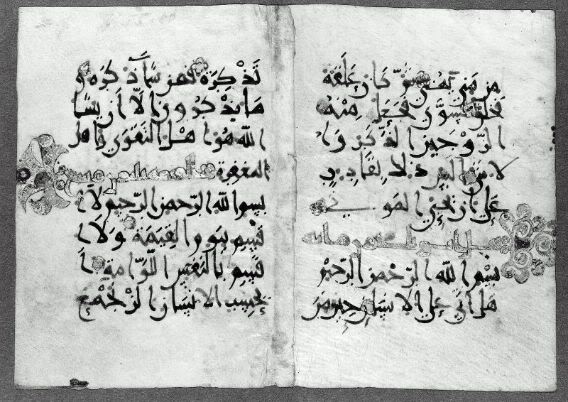 من مني تمنى ثم كان علقة
فخلق فسوى فجعل منه
الزوجين الذكر وا
لانثى اليس ذلك بقادر
على ان يحي الموتى
بسم الله الرحمن الرحيم
هل اتى على الانسان حين من
تذكرة فمن شا ذكره و
ما يذكرون الا ان يشا
الله هو اهل التقوى واهل
المغفرة
بسم الله الرحمن الرحيم لا ا
قسم بيوم القيمة ولا ا
قسم بالنفس اللوامة ا
يحسب الانسان الن نجمع